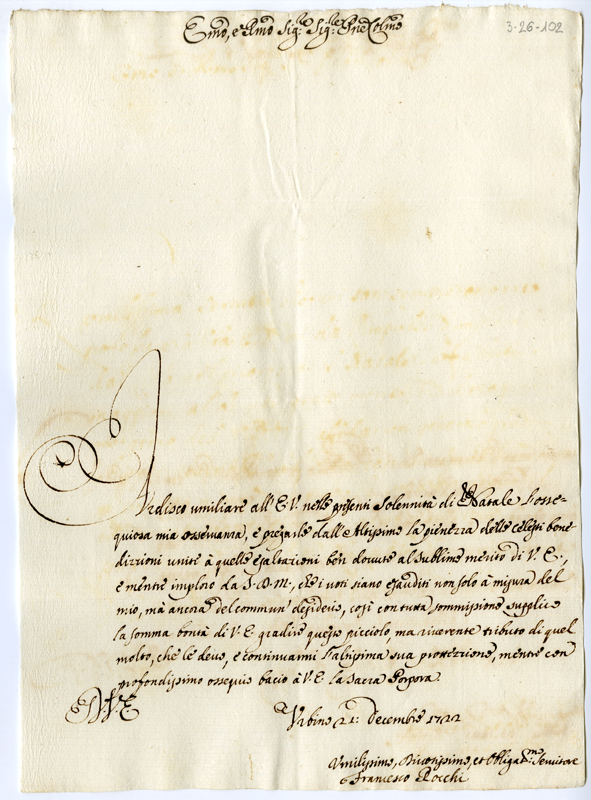 3-26-102
Emo, e Rmo Sig.re Sig.re Pne Colmo
Ardisco umiliare all'E.V. nelle presenti Solennità di Natale l'osse=
quiosa mia osservanza, e pregarle dall'Altissimo la pienezza delle celesti bene
dizzioni unite à quelle esaltazioni ben dovute al sublime merito di V.E.,
e mentre imploro da S.D.M., che i voti siano esauditi non solo à misura del
mio, mà ancora del commun desiderio, così con tutta sommissione supplico
la somma bontà di V.E. gradire questo picciolo, ma riverente tributo di quel
molto, che le devo, e continuarmi l'altissima sua protezzione, mentre con
profondissimo ossequio bacio à V.E. la Sacra Porpora.
Di V.E.
Urbino 21: Decembre 1722
Umilissimo, Divotissimo, et Obligat.mo Servitore
Francesco Rocchi